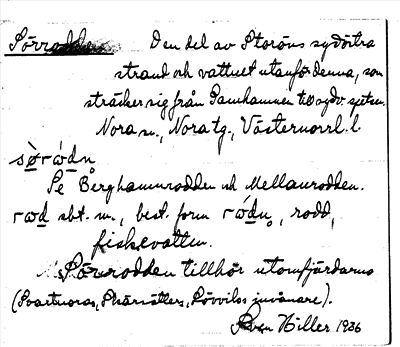 Sörrodden Den del av Storöns sydöstra
strand och vattnet utanför denna, som
sträcker sig från Gamhamnen till sydv. spetsen.
Nora sn., Nora tg., Västernorrl. l.
sö̀rẁdn
Se Berghamnrodden och Mellanrodden.
rwd sbt. m., best. form rẃdn, rodd,
fiskevatten.
Sörrodden tillhör utomfjärdarna
(Svartnoras, Skärsätters, invånare).
Sven Hiller 1936